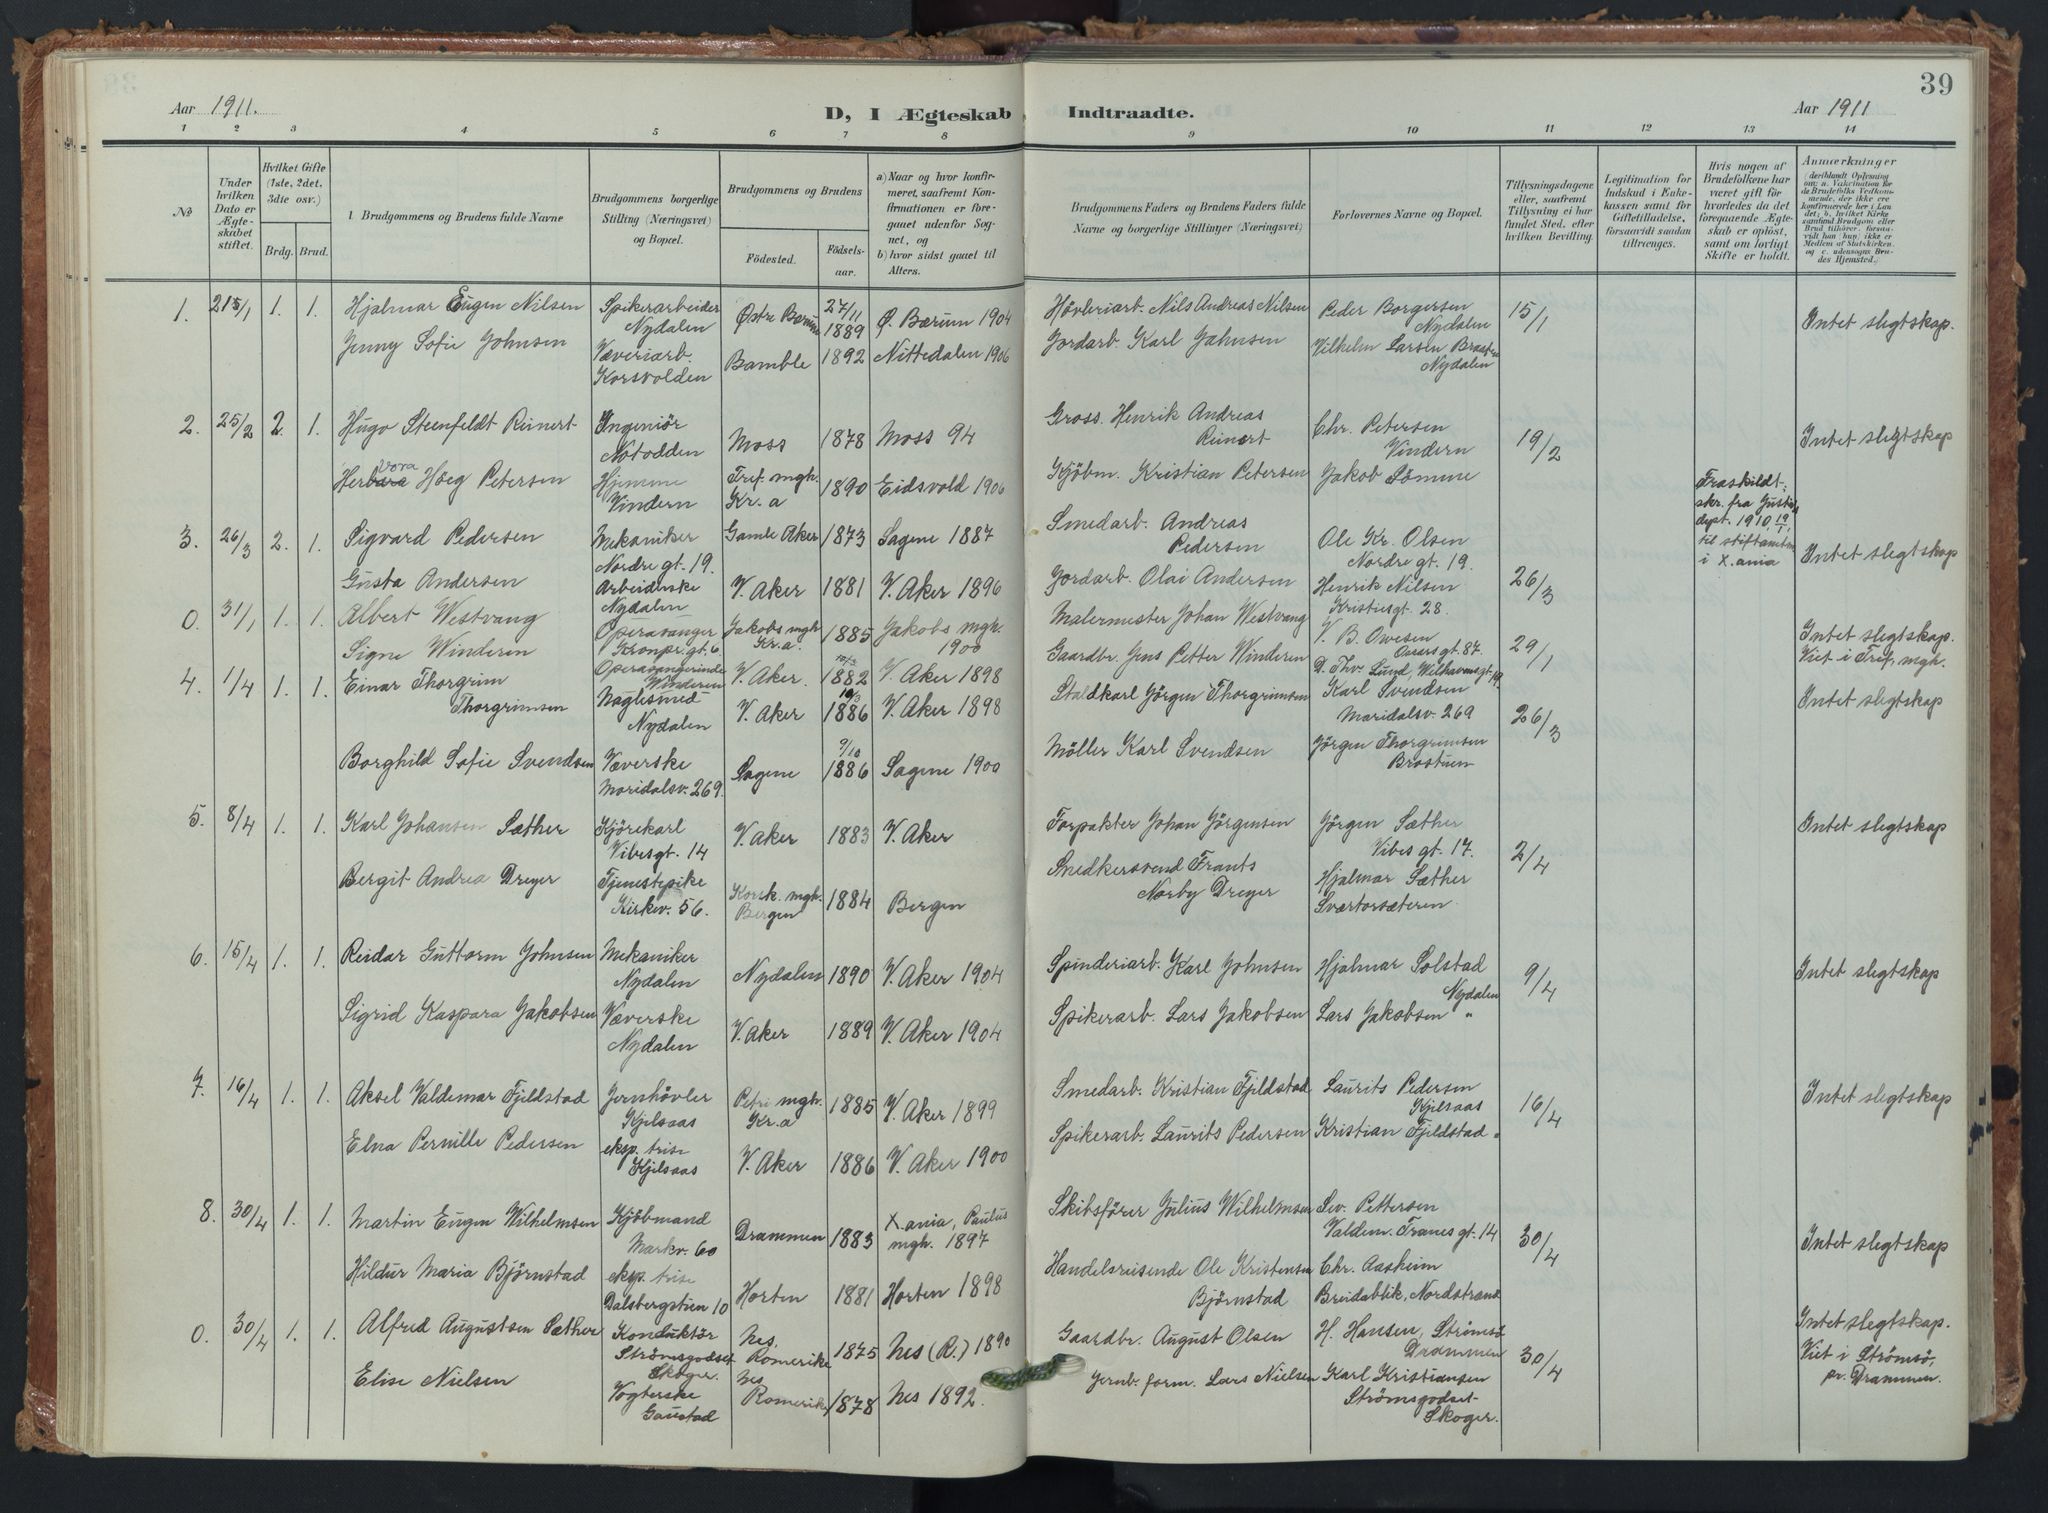 39
Aar 1911.
D, I Ægteskab Indtraadte.
Aar 1911
1 2 3 4 5 6 7 8 9 10 11 12 13 14
№
Under hvilken Dato er Ægteskabet stiftet.
Hvilket Gifte (1ste, 2det, 3die osv.)
Brdg. Brud.
Brudgommens og Brudens fulde Navne
Brudgommens borgerlige Stilling (Næringsvei) og Bopæl.
Brudgommens og Brudens
Födested.
Födselsaar.
a) Naar og hvor konfirmeret, saafremt Konfirmationen er foregaaet udenfor Sognet, og
b) hvor sidst gaaet til Alters.
Brudgommens Faders og Brudens Faders fulde Navne og borgerlige Stillinger (Næringsvei)
Forlovernes Navne og Bopæl.
Tillysningsdagene eller, saafremt Tillysning ei har fundet Sted, efter hvilken Bevilling.
Legitimation for Indskud i Enkekassen samt for Giftetilladelse, forsaavidt saadan tiltrænges.
Hvis nogen af Brudefolkene har været gift før hvorledes da det foregaaende Ægteskab er opløst, samt om lovligt Skifte er holdt.
Anmærkninger
1. 1. 1. Hjalmar Eugen Nilsen Spikerarbeider Nydalen Østre Bærum 27/11 1889 Ø. Bærum 1904 Høvleriarb. Nils Andreas Nilsen Peder Borgersen Nydalen 15/1 Intet slegtskap.
Jenny Sofie Johnsen Væveriarb. Korsvolden Bamble 1892 Nittedalen 1906 Jordarb. Karl Johnsen Vilhelm Larsen Braaten Nydalen
2. 25/2 2. 1. Hugo Steenfeldt Reinert Ingeniör Notodden Moss 1878 Moss 94 Gross. Henrik Andreas Reinert Chr. Petersen Vindern 19/2 Intet slegtskap
Höeg Petersen Hjemme Vindern Tref. mgh. Kr.a 1890 Eidsvold 1906 Kjöbm. Kristian Petersen Jakob Sömme
Fraskildt; skr. fra Justisdept. 1910, 19/1, til stiftamtm. i X.ania
3. 26/3 2. 1. Sigvard Pedersen Mekaniker Nordre gt. 19. Gamle Aker 1873 Sagene 1887 Smedarb. Andreas Pedersen Ole Kr. Olsen Nordre gt. 19. Intet slegtskap
Gusta Andersen Arbeiderske Nydalen V. Aker 1881 V. Aker 1896 Jordarb. Olai Andersen Henrik Nilsen Kristiesgt. 28. 26/3
0. 31/1 1. 1. Albert Westvang Operasanger Kronpr.gt. 6 Jakobs mgh Kr.a. 1885 Jakobs mgh. 1900 Malermester Johan Westvang V. B. Owesen Oscarsgt. 87. 29/1 Intet slegtskap. Viet i Tref. mgh.
Signe Winderen Operasangerinde Winderen V. Aker 1882 V. Aker 1898 Gaardbr. Jens Petter Winderen D. Thv. Lund,
4. 1/4 1. 1. Einar Thorgrim Thorgrimsen Naglesmed Nydalen V. Aker 1886 V. Aker 1898 Staldkarl Jörgen Thorgrimsen Karl Svendsen Maridalsv. 269 26/3 Intet slegtskap
Borghild Sofie Svendsen Væverske Maridalsv. 269. Sagene 9/10 1886 Sagene 1900 Möller Karl Svendsen Jörgen Thorgrimsen Brostuen
5. 8/4 1. 1. Karl Johansen Sæther Kjörekarl Vibesgt. 14 V. Aker 1883 V. Aker Forpakter Johan Jörgensen Jörgen Sæther Vibes gt. 17. 2/4 Intet slegtskap
Bergit Andrea Dreyer Tjenestepike Kirkev. 56. Korsk. mgh. Bergen 1884 Bergen Snedkersvend Frants Norby Dreyer Hjalmar Sæther Svartorsæteren.
6. 15/4 1. 1. Reidar Guttorm Johnsen Mekaniker Nydalen Nydalen 1890 V. Aker 1904 Spinderiarb. Karl Johnsen Hjalmar Solstad Nydalen 9/4 Intet slegtskap
Sigrid Kaspara Jakobsen Væverske Nydalen V. Aker 1889 V. Aker 1904 Spikerarb. Lars Jakobsen Lars Jakobsen "
7. 16/4 1. 1. Aksel Valdemar Fjeldstad Jernhövler Kjelsaas Petri mgh. Kr.a 1885 V. Aker 1899 Smedarb. Kristian Fjeldstad Laurits Pedersen Kjelsaas 16/4 Intet slegtskap
Elna Pernille Pedersen eksp. trise Kjelsaas V. Aker 1886 V. Aker 1900 Spikerarb. Laurits Pedersen Kristian Fjeldstad "
8. 30/4 1. 1. Martin Eugen Wilhelmsen Kjöbmand Markv. 60 Drammen 1883 X.ania, Paulus mgh. 1897 Skibsförer Julius Wilhelmsen Sev. Pettersen Valdem. Tranes gt. 14 30/4 Intet slegtskap
Hildur Maria Björnstad eksp. trise Dalsbergstien 10 Horten 1881 Horten 1898 Handelsreisende Ole Kristensen Björnstad Chr. Aasheim Breidablik, Nordstrand
0. 30/4 1. 1. Alfred Augustsen Sæther Konduktör Strömsgodset Skoger. Nes Romerike 1875 Nes (R.) 1890 Gaardbr. August Olsen H. Hansen, Strömsö Drammen 30/4 Intet slegtskap. Viet i Strömsö, pr. Drammen.
Elise Nielsen Vogterske Gaustad Nes Romerike 1878 Nes 1892. Jernb. form. Lars Nielsen Karl Kristiansen Strömsgodset Skoger.